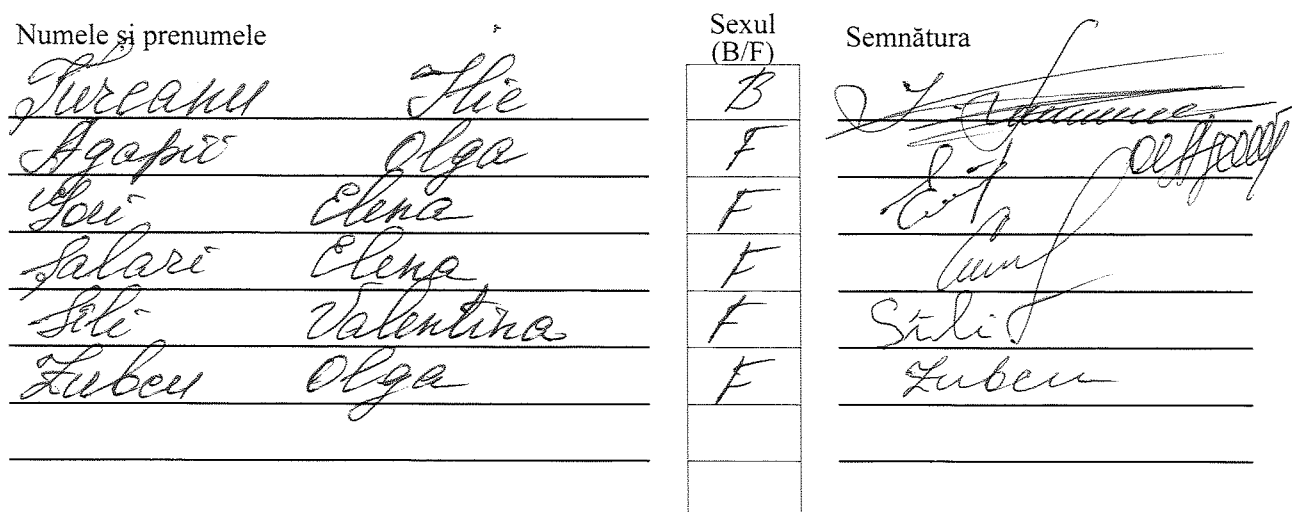 Numele și prenumele Sexul (B/F) Semnătura
Țurcanu Ilie B
Agapii Olga F
Gori Elena F
Salari Elena F
Sîli Valentina F Sîrli
Zubcu Olga F Zubcu